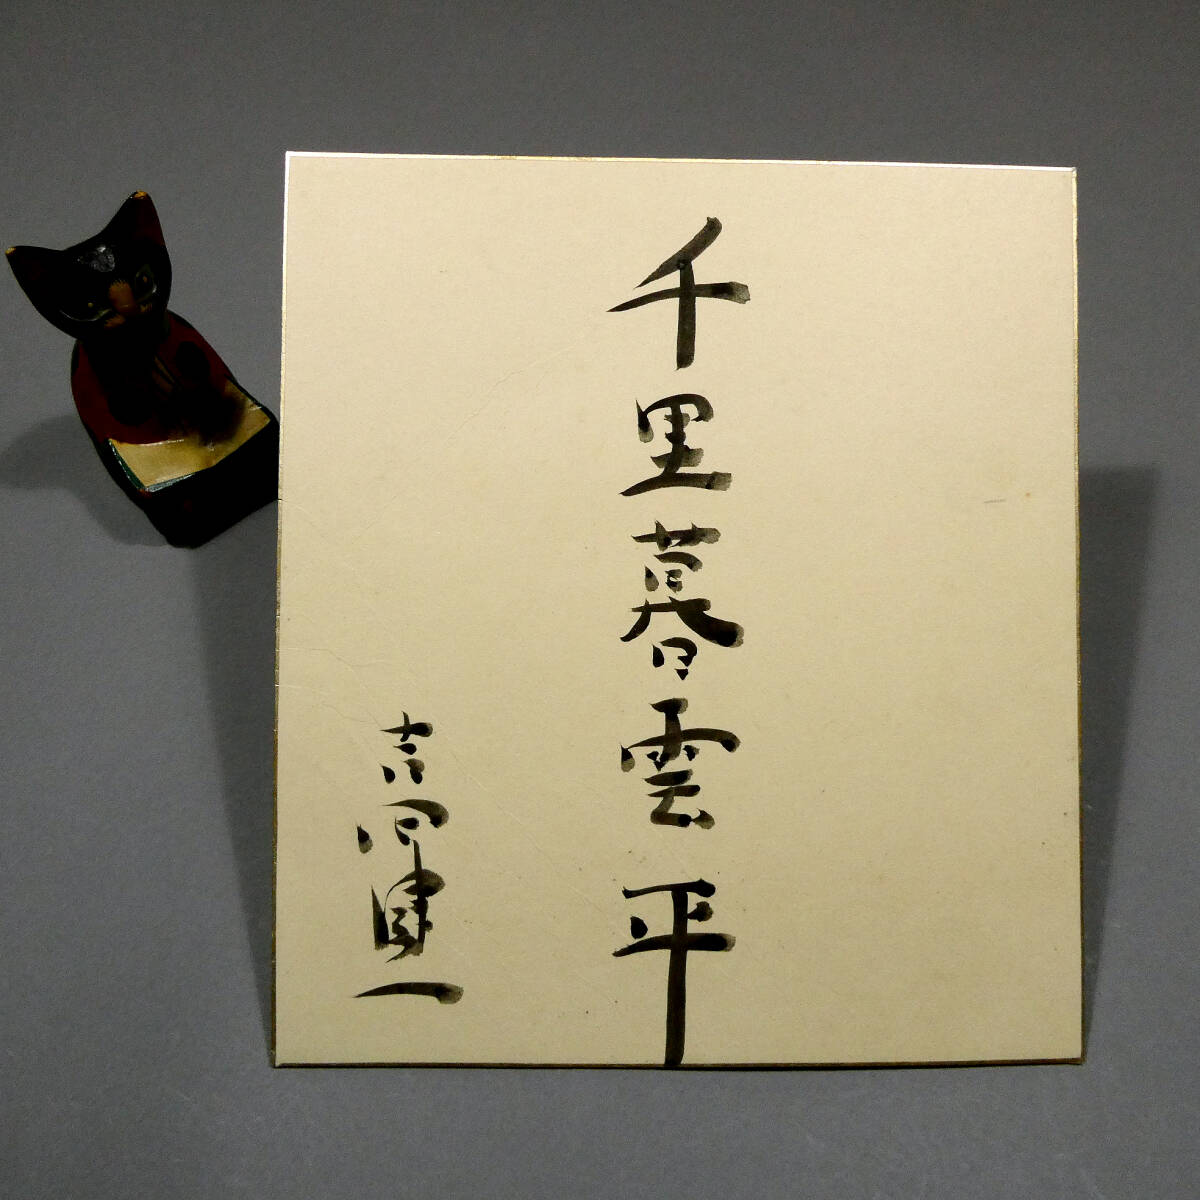 千里暮雲平
吉田健一